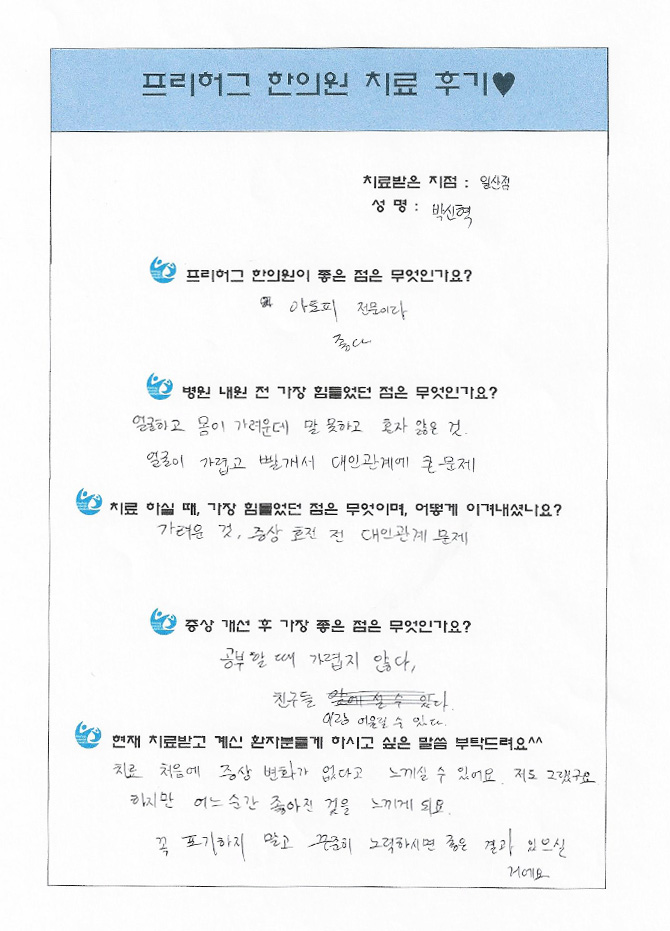 프리허그 한의원 치료 후기♥
치료받은 지점 : 일산점
성 명 : 박신혁
프리허그 한의원이 좋은 점은 무엇인가요?
아토피 전문이라
좋다
병원 내원 전 가장 힘들었던 점은 무엇인가요?
얼굴하고 몸이 가려운데 말 못하고 혼자 앓은 것.
얼굴이 가렵고 빨개서 대인관계에 큰문제
치료 하실 때, 가장 힘들었던 점은 무엇이며, 어떻게 이겨내셨나요?
가려운 것, 증상 호전 전 대인관계 문제
증상 개선 후 가장 좋은 점은 무엇인가요?
공부할 때 가렵지 않다,
친구들 앞에 설 수 있다.
이랑 어울릴 수 있다.
현재 치료받고 계신 환자분들게 하시고 싶은 말씀 부탁드려요^^
치료 처음에 증상 변화가 없다고 느끼실 수 있어요. 저도 그랬구요
하지만 어느순간 좋아진 것을 느끼게 되요.
꼭 포기하지 말고 꾸준히 노력하시면 좋은 결과 있으실
거에요